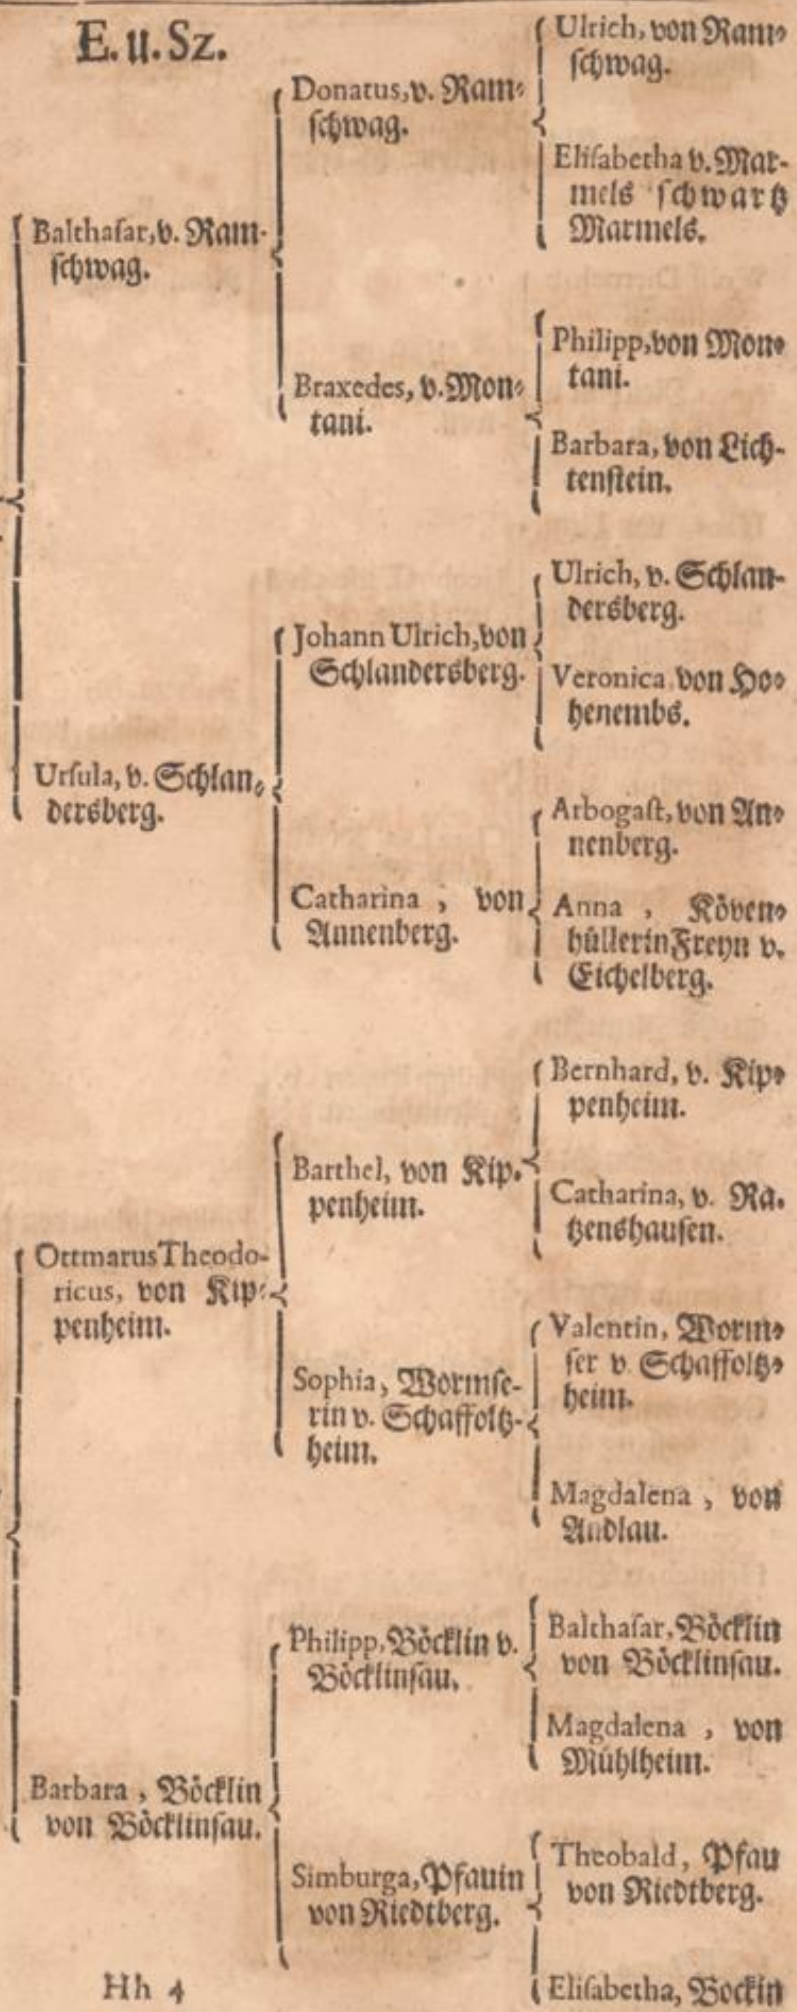 E. u. Sz.
Balthasar, v. Ram-
schwag.
Ursula, v. Schlan-
dersberg.
Ottmarus Theodo-
ricus, von Kip-
penheim.
Barbara, Böcklin
von Böcklinsau.
Donatus, v. Ram-
schwag.
Braxedes, v. Mon-
tani.
Johann Ulrich, von
Schlandersberg.
Catharina, von
Annenberg.
Barthel, von Kip-
penheim.
Sophia, Wormse-
rin v. Schaffoltz-
heim.
Philipp, Böcklin v.
Böcklinsau.
Simburga, Pfauin
von Riedtberg.
Ulrich, von Ram-
schwag.
Elisabetha v. Mar-
mels schwartz
Marmels.
Philipp, von Mon-
tani.
Barbara, von Lich-
tenstein.
Ulrich, v. Schlan-
dersberg.
Veronica von Ho-
henembs.
Arbogast, von An-
nenberg.
Anna, Köven-
hüllerin Freyn v.
Eichelberg.
Bernhard, v. Kip-
penheim.
Catharina, v. Ra-
tzenshausen.
Valentin, Worm-
ser v Schaffoltz-
heim.
Magdalena, von
Andlau.
Balthasar, Böcklin
von Böcklinsau.
Magdalena, von
Mühlheim.
Theobald, Pfau
von Riedtberg.
Elisabetha, Bockin
Hh 4